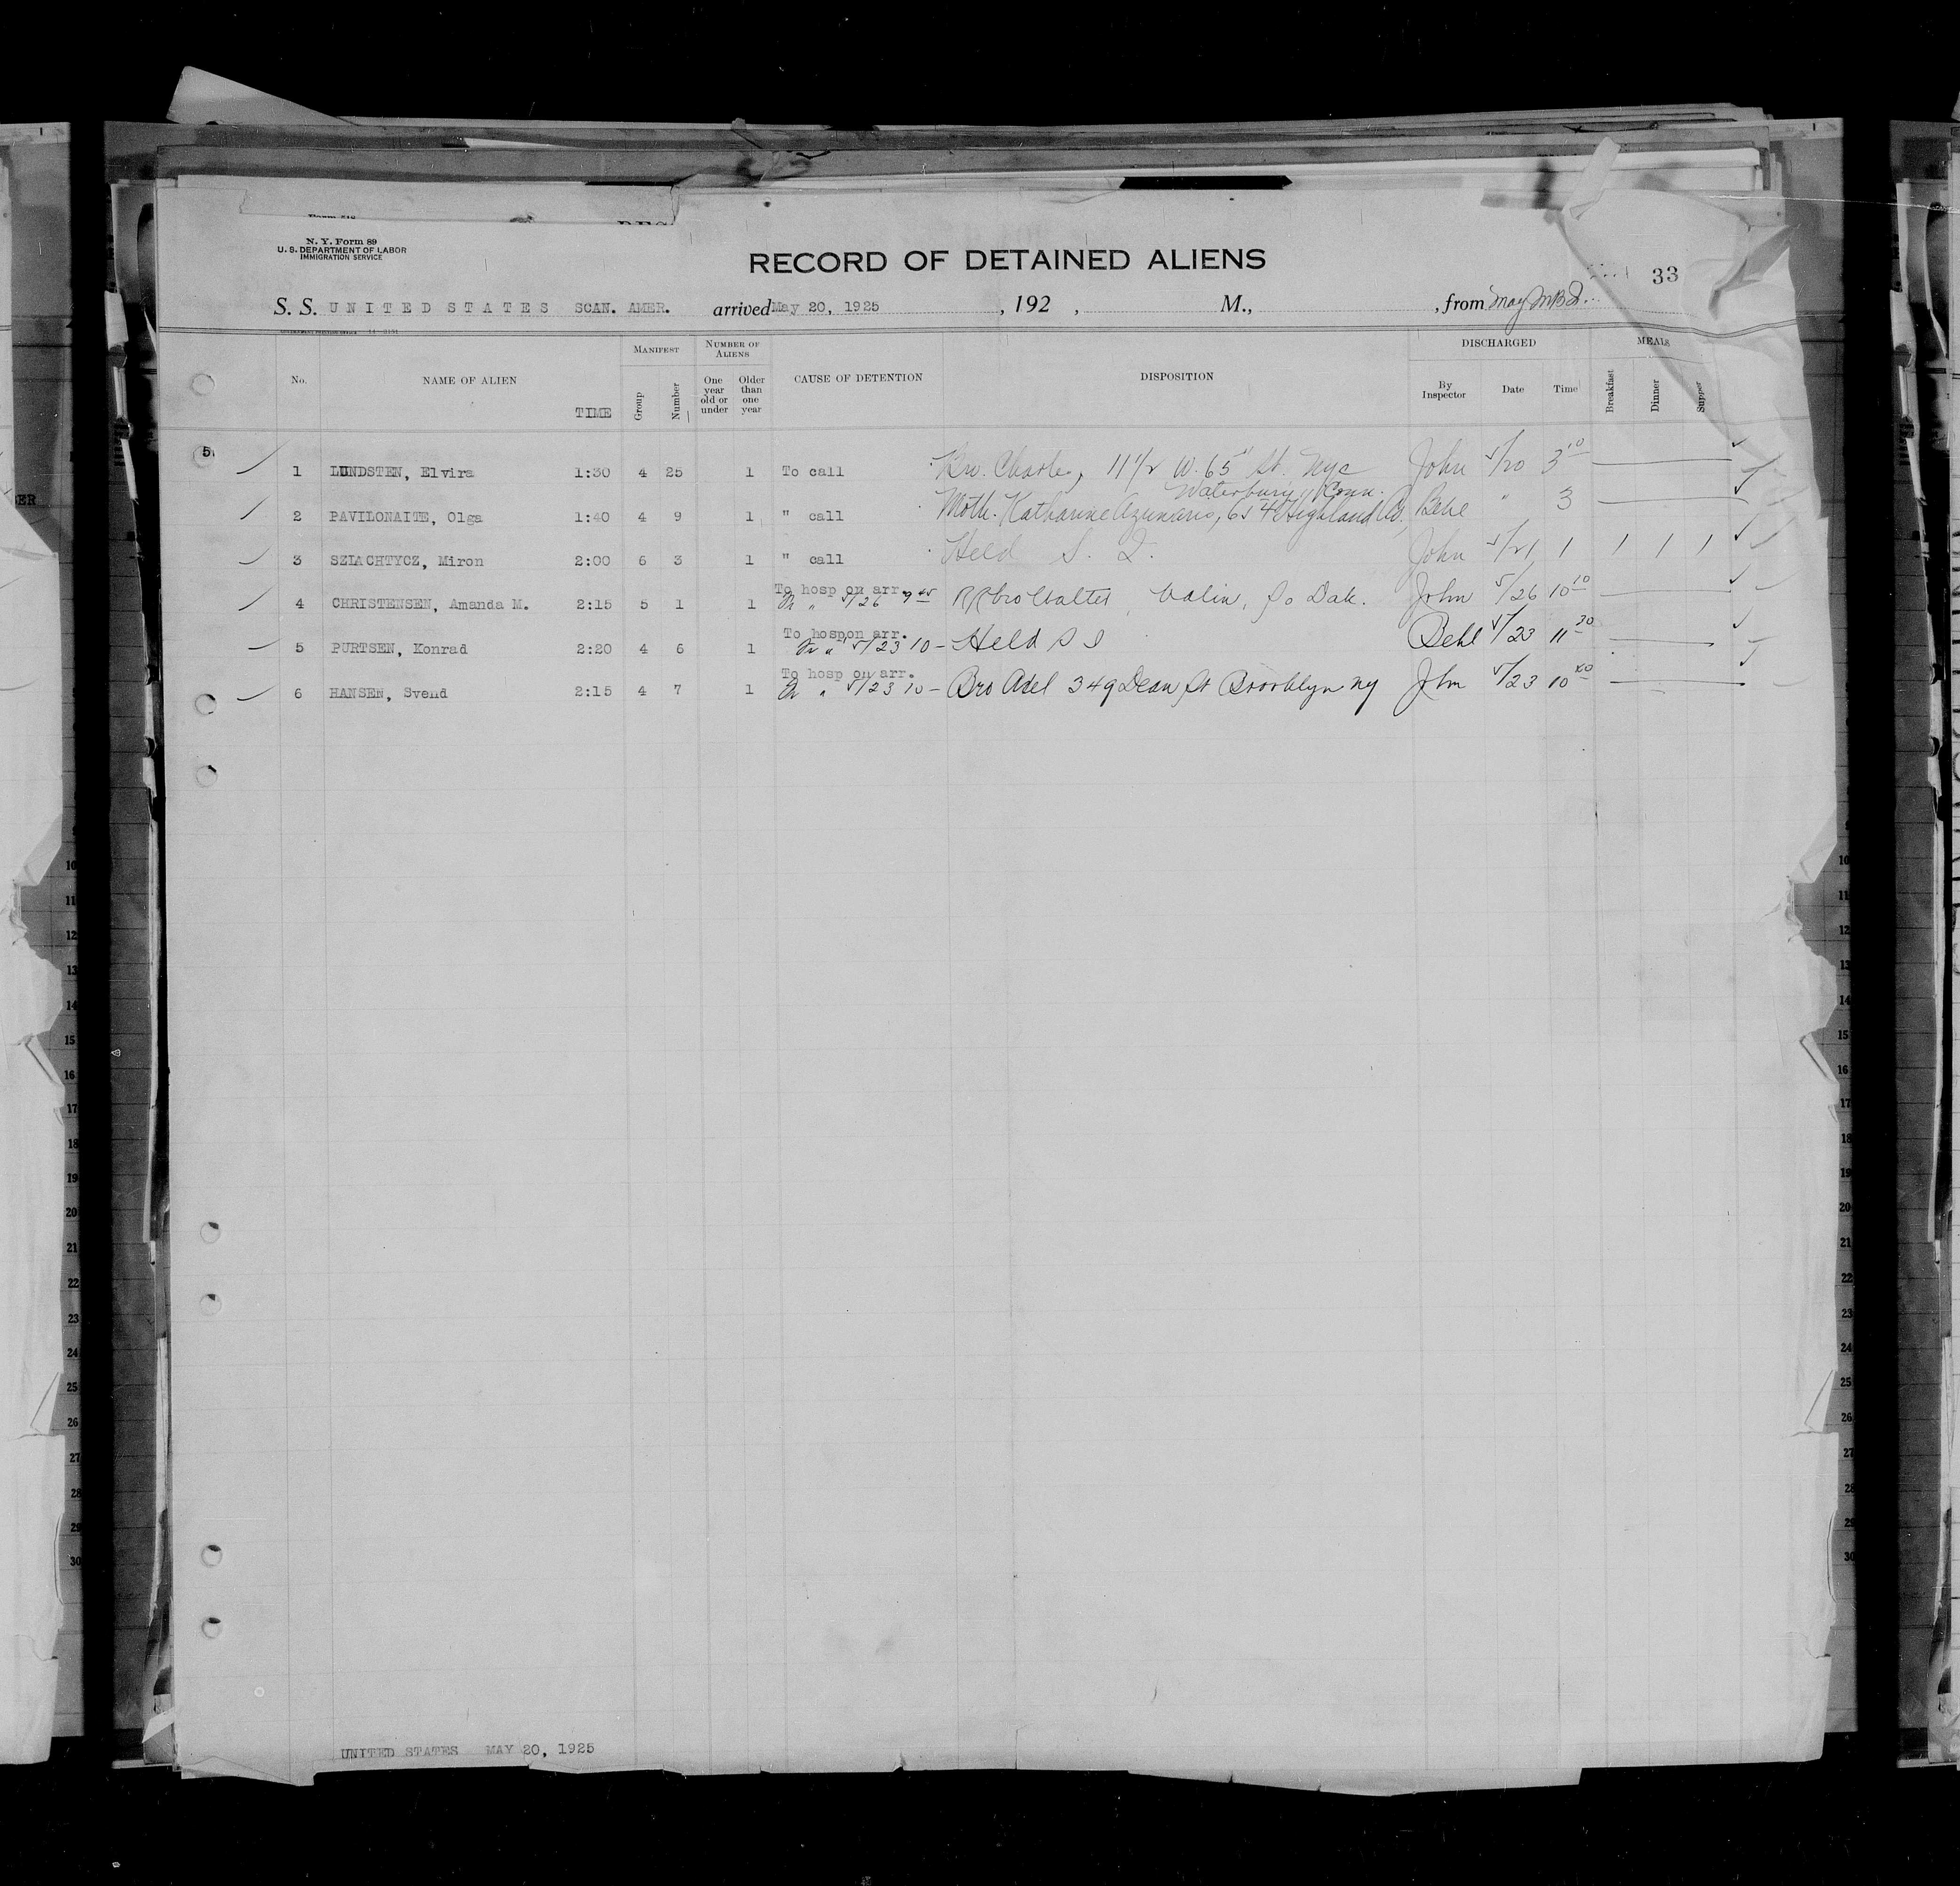 N. Y. Form 89
U. S. DEPARTMENT OF LABOR
IMMIGRATION SERVICE
RECORD OF DETAINED ALIENS
33
S. S. UNITED STATES SCAN. AMER. arrived May 20, 1925 , 192 , M., , from May
No. NAME OF ALIEN TIME MANIFEST Group Number NUMBER OF ALIENS One year old or under Older than one year CAUSE OF DETENTION DISPOSITION DISCHARGED By Inspector Date Time MEALS Breakfast Dinner Supper
5
1 LUNDSTEN, Elvira 1:30 4 25 1 To call Charles, 11 1/2 W. 65" St. Nyc John 5/20 3 10
Waterbury, Conn.
2 PAVILONAITE, Olga 1:40 4 9 1 " call Moth. Katharine 654 Highland Av. Behl " 3
3 SZIACHTYCZ, Miron 2:00 6 3 1 " call Held S. I. John 5/21 1 1 1 1
To hosp on arr.
4 CHRISTENSEN, Amanda M. 2:15 5 1 1 " 5/26 9 45 RR bro Walter, Volin, So Dak. John 5/26 10 10
To hosp on arr.
5 PURTSEN, Konrad 2:20 4 6 1 " 5/23 10 - Held S I Behl 5/23 11 30
To hosp on arr.
6 HANSEN, Svend 2:15 4 7 1 " 5/23 10 - Bro Axel 349 Dean St Brooklyn Ny John 5/23 10 40
UNITED STATES MAY 20, 1925